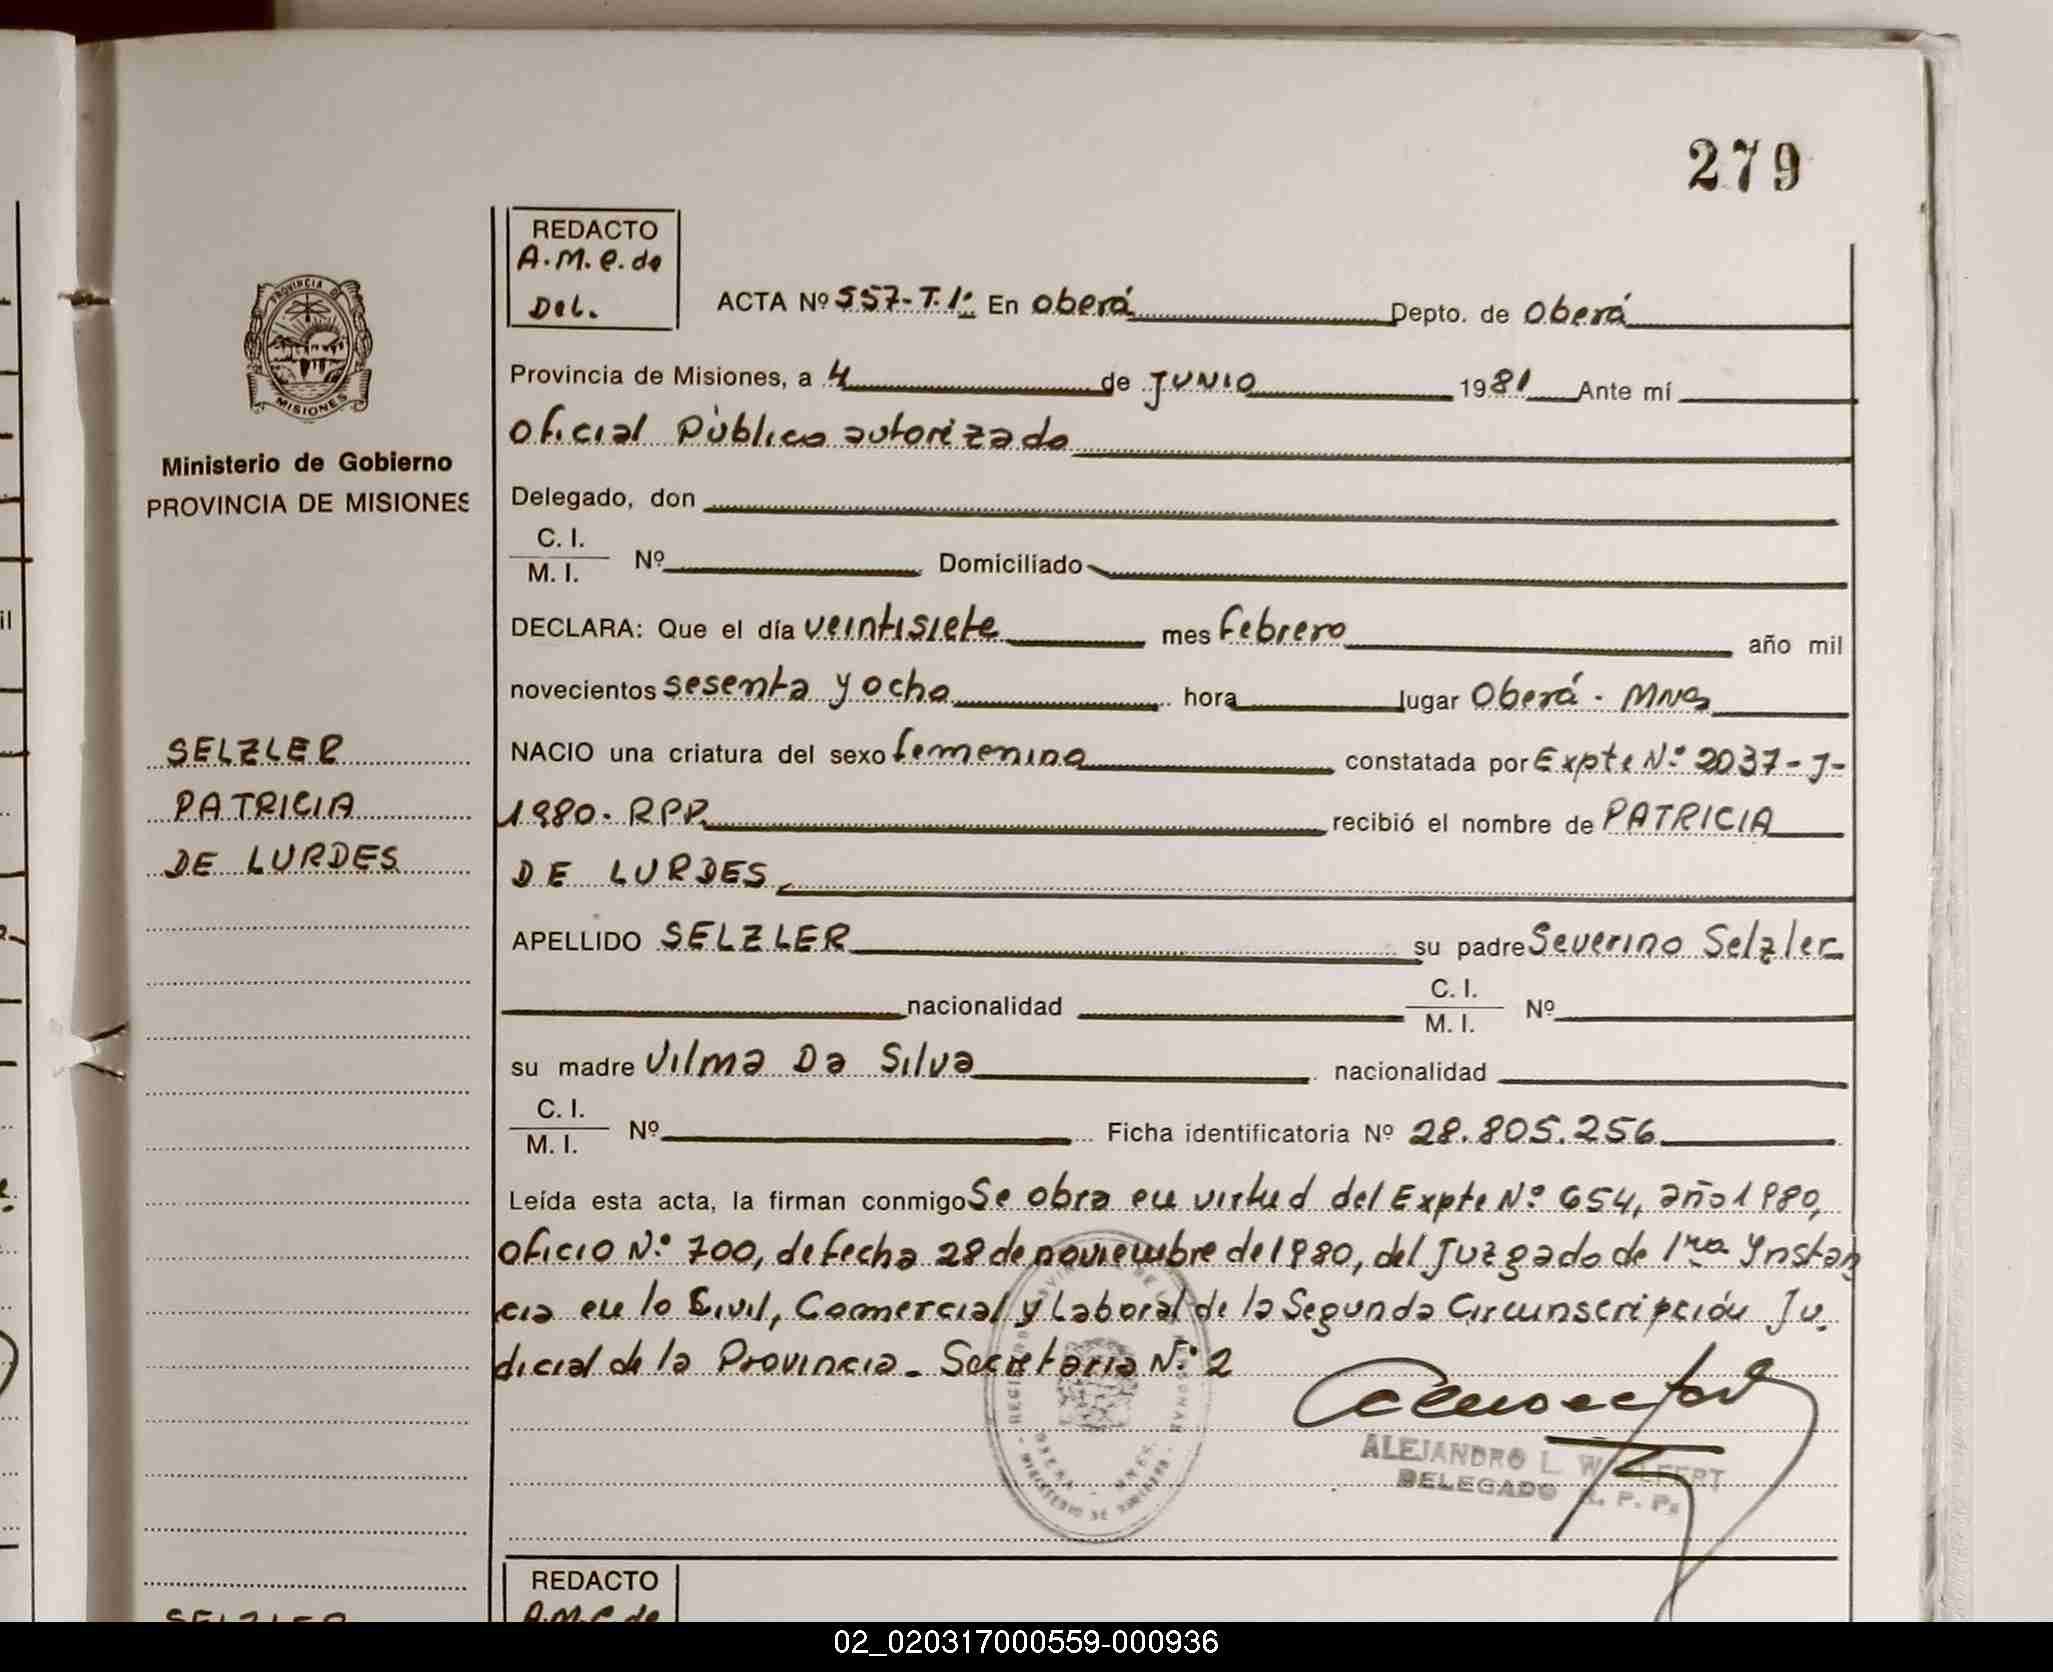 279
REDACTO
A.M.C. de
Del.
ACTA Nº 557-T.1º En Oberá Depto. de Oberá
Provincia de Misiones, a 4 de JUNIO 1981 Ante mí
Oficial Público autorizado
Delegado, don
C. I.
M. I. Nº Domiciliado
DECLARA: Que el día veintisiete mes febrero año mil
novecientos sesenta y ocho hora lugar Oberá - MNes
NACIO una criatura del sexo femenino constatada por Expte Nº 2037-J-
1980. RPP. recibió el nombre de PATRICIA
DE LURDES
APELLIDO SELZLER su padre Severino Selzler
nacionalidad C. I.
M. I. Nº
su madre Vilma Da Silva nacionalidad
C. I.
M. I. Nº Ficha identificatoria Nº 28.805.256
Leída esta acta, la firman conmigo Se obra en virtud del Expte Nº 654, año 1980,
oficio Nº 700, de fecha 28 de noviembre de 1980, del Juzgado de 1ra Ynstan
cia en lo Civil, Comercial y Laboral de la Segunda Circunscripción Ju.
dicial de la Provincia. Secretaria Nº 2
ALEJANDRO L.
DELEGADO R. P. P.
PROVINCIA DE
MISIONES
Ministerio de Gobierno
PROVINCIA DE MISIONES
SELZLER
PATRICIA
DE LURDES
REDACTO
A.M.C. de
SELZLER
02_020317000559-000936